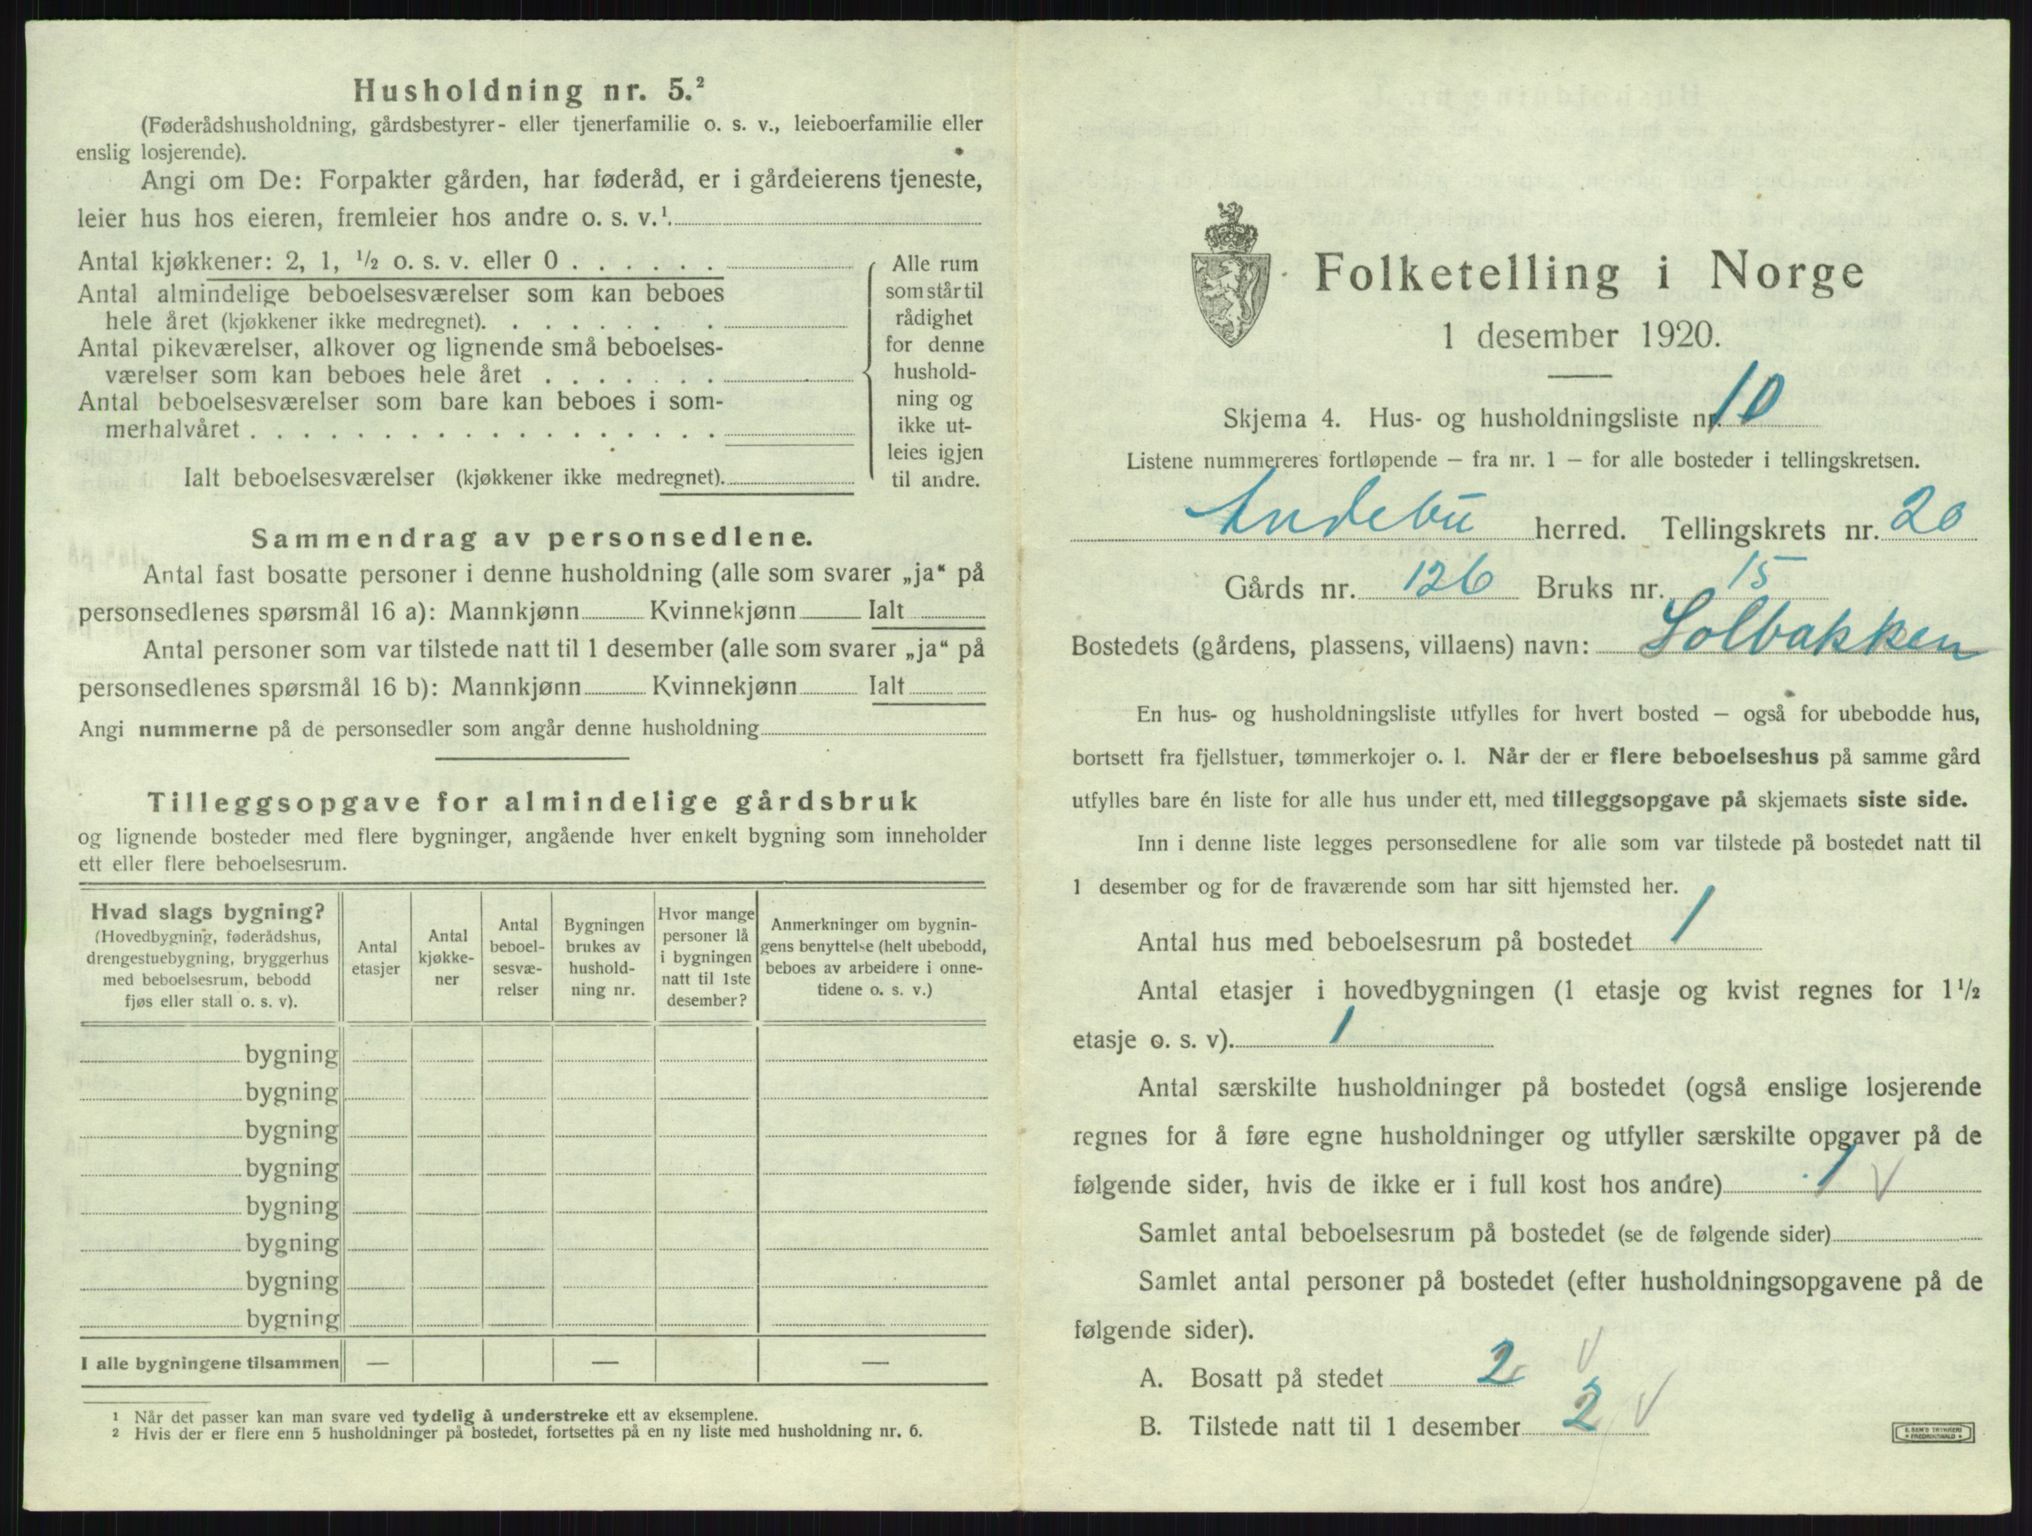 Husholdning nr. 5.²
(Føderådshusholdning, gårdsbestyrer- eller tjenerfamilie o. s. v., leieboerfamilie eller
enslig losjerende).
Angi om De: Forpakter gården, har føderåd, er i gårdeierens tjeneste,
leier hus hos eieren, fremleier hos andre o. s. v.¹
Antal kjøkkener: 2, 1, ½ o. s. v. eller 0 . . . . . .
Antal almindelige beboelsesværelser som kan beboes
hele året (kjøkkener ikke medregnet). . . . . . . .
Antal pikeværelser, alkover og lignende små beboelses-
værelser som kan beboes hele året . . . . . . .
Antal beboelsesværelser som bare kan beboes i som-
merhalvåret . . . . . . . . . . . . . . . . . .
Ialt beboelsesværelser (kjøkkener ikke medregnet).
Alle rum
som står til
rådighet
for denne
hushold-
ning og
ikke ut-
leies igjen
til andre.
Sammendrag av personsedlene.
Antal fast bosatte personer i denne husholdning (alle som svarer „ja“ på
personsedlenes spørsmål 16 a): Mannkjønn Kvinnekjønn Ialt
Antal personer som var tilstede natt til 1 desember (alle som svarer „ja“ på
personsedlenes spørsmål 16 b): Mannkjønn Kvinnekjønn Ialt
Angi nummerne på de personsedler som angår denne husholdning
Tilleggsopgave for almindelige gårdsbruk
og lignende bosteder med flere bygninger, angående hver enkelt bygning som inneholder
ett eller flere beboelsesrum.
Hvad slags bygning?
(Hovedbygning, føderådshus,
drengestuebygning, bryggerhus
med beboelsesrum, bebodd
fjøs eller stall o. s. v).
Antal
etasjer
Antal
kjøkke-
ner
Antal
beboel-
sesvæ-
relser
Bygningen
brukes av
hushold-
ning nr.
Hvor mange
personer lå
i bygningen
natt til 1ste
desember?
Anmerkninger om bygnin-
gens benyttelse (helt ubebodd,
beboes av arbeidere i onne-
tidene o. s. v.)
bygning
bygning
bygning
bygning
bygning
bygning
bygning
bygning
I alle bygningene tilsammen — — —
¹ Når det passer kan man svare ved tydelig å understreke ett av eksemplene.
² Hvis der er flere enn 5 husholdninger på bostedet, fortsettes på en ny liste med husholdning nr. 6.
Folketelling i Norge
1 desember 1920.
Skjema 4. Hus- og husholdningsliste nr. 10
Listene nummereres fortløpende — fra nr. 1 — for alle bosteder i tellingskretsen.
Andebu herred. Tellingskrets nr. 20
Gårds nr. 126 Bruks nr. 15
Bostedets (gårdens, plassens, villaens) navn: Solbakken
En hus- og husholdningsliste utfylles for hvert bosted — også for ubebodde hus,
bortsett fra fjellstuer, tømmerkojer o. l. Når der er flere beboelseshus på samme gård
utfylles bare én liste for alle hus under ett, med tilleggsopgave på skjemaets siste side.
Inn i denne liste legges personsedlene for alle som var tilstede på bostedet natt til
1 desember og for de fraværende som har sitt hjemsted her.
Antal hus med beboelsesrum på bostedet 1
Antal etasjer i hovedbygningen (1 etasje og kvist regnes for 1½
etasje o. s. v). 1
Antal særskilte husholdninger på bostedet (også enslige losjerende
regnes for å føre egne husholdninger og utfyller særskilte opgaver på de
følgende sider, hvis de ikke er i full kost hos andre) 1 √
Samlet antal beboelsesrum på bostedet (se de følgende sider)
Samlet antal personer på bostedet (efter husholdningsopgavene på de
følgende sider).
A. Bosatt på stedet 2 √
B. Tilstede natt til 1 desember 2 √